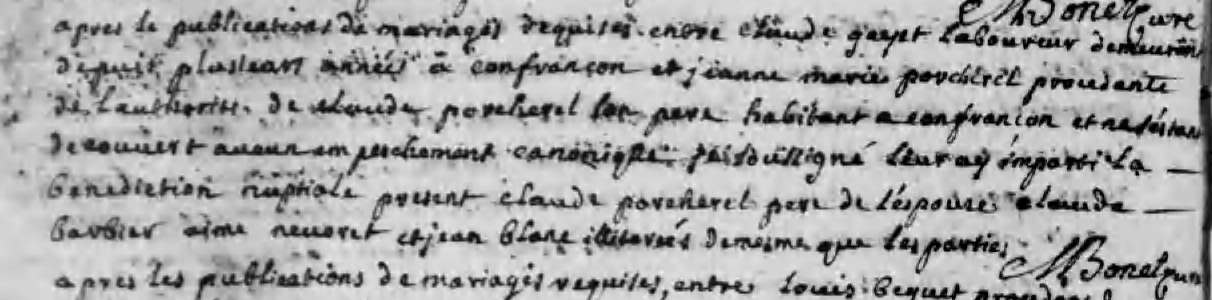 MBonet cure
apres le publications de mariages requises entre claude gayet laboureur demeurant
depuit plusieurs années a confrancon et jeanne marie porcherel procedante
de l'authorite de claude porcherel son pere habitant a confrancon et ne sestant
decouvert aucun empeschement canonique je soussigné leur ay imparti la —
benediction nuptiale present claude porcherel pere de l'espouse claude —
barbier aime neuoret et jean blanc illiterés de mesme que les parties
MBonet cure
apres les publications de mariages requises, entre Louis Bequet